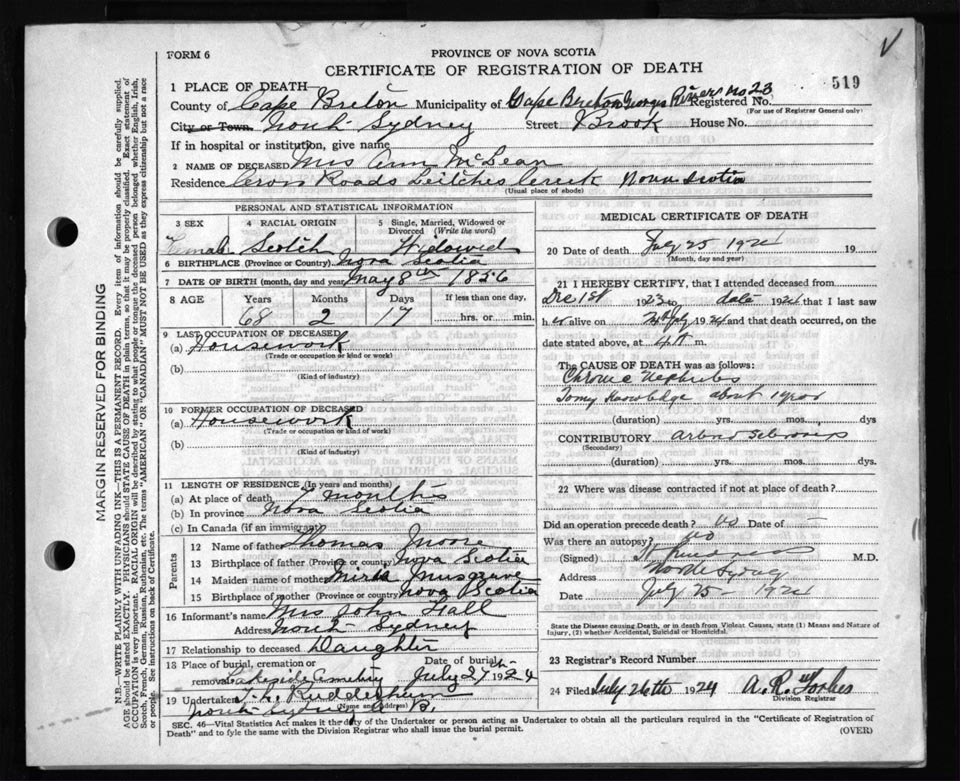 FORM 6
PROVINCE OF NOVA SCOTIA
CERTIFICATE OF REGISTRATION OF DEATH
519
1 PLACE OF DEATH
County of Cape Breton Municipality of Cape Breton Georges River no 23 Registered No.
(For use of Registrar General only)
City or Town. North Sydney Street Brook House No.
If in hospital or institution, give name
2 NAME OF DECEASED Mrs Ann McLean
Residence Cross Roads Leitches Creek Nova Scotia
(Usual place of abode)
PERSONAL AND STATISTICAL INFORMATION
3 SEX 4 RACIAL ORIGIN 5 Single, Married, Widowed or Divorced (Write the word)
Female Scotch Widowed
6 BIRTHPLACE (Province or Country) Nova Scotia
7 DATE OF BIRTH (month, day and year) May 8th 1856
8 AGE Years Months Days If less than one day,
68 2 17 hrs. or min.
9 LAST OCCUPATION OF DECEASED
(a) Housework
(Trade or occupation or kind or work)
(b)
(Kind of industry)
10 FORMER OCCUPATION OF DECEASED
(a) Housework
(Trade or occupation or kind of work)
(b)
(Kind of industry)
11 LENGTH OF RESIDENCE (In years and months)
(a) At place of death 7 months
(b) In province Nova Scotia
(c) In Canada (if an immigrant)
Parents
12 Name of father Thomas Moore
13 Birthplace of father (Province or country) Nova Scotia
14 Maiden name of mother Musgrave
15 Birthplace of mother (Province or country) Nova Scotia
16 Informant's name Mrs John Hall
Address North Sydney
17 Relationship to deceased Daughter
18 Place of burial, cremation or removal Lakeside Cemetery Date of burial July 27th 1924
19 Undertaker Rudderham
(Name and address)
North Sydney C. B.
MEDICAL CERTIFICATE OF DEATH
20 Date of death July 25 1924 19
(Month, day and year)
21 I HEREBY CERTIFY, that I attended deceased from
Dec 1st 1923 to date 1924 that I last saw
her alive on 24 July 1924 and that death occurred, on the
date stated above, at 4 m.
The CAUSE OF DEATH was as follows:
Chronic Nephritis
To my knowledge about 1 year
(duration) yrs. mos. dys
CONTRIBUTORY Arterio Sclerosis
(Secondary)
(duration) yrs. mos. dys.
22 Where was disease contracted if not at place of death?
Did an operation precede death? No Date of -
Was there an autopsy? No
(Signed) M.D.
Address North Sydney
Date July 25 - 1924
State the Disease causing Death, or in death from Violent Causes, state (1) Means and Nature of
Injury, (2) whether Accidental, Suicidal or Homicidal.
23 Registrar's Record Number
24 Filed July 26th 1924 A. R. Forbes
Division Registrar
SEC. 46—Vital Statistics Act makes it the duty of the Undertaker or person acting as Undertaker to obtain all the particulars required in the "Certificate of Registration of
Death" and to fyle the same with the Division Registrar who shall issue the burial permit.
(OVER)
MARGIN RESERVED FOR BINDING
N.B.—WRITE PLAINLY WITH UNFADING INK—THIS IS A PERMANENT RECORD. Every item of information should be carefully supplied.
AGE should be stated EXACTLY. PHYSICIANS should STATE CAUSE OF DEATH in plain terms, so that it may be properly classified. Exact statement of
OCCUPATION is very important. RACIAL ORIGIN will be described by stating to what people or tongue the deceased person belonged whether English, Irish,
Scotch, French, German, Russian, Ruthenian, etc. The terms "AMERICAN" or "CANADIAN" MUST NOT BE USED as they express citizenship but not a race
or people. See instructions on back of Certificate.